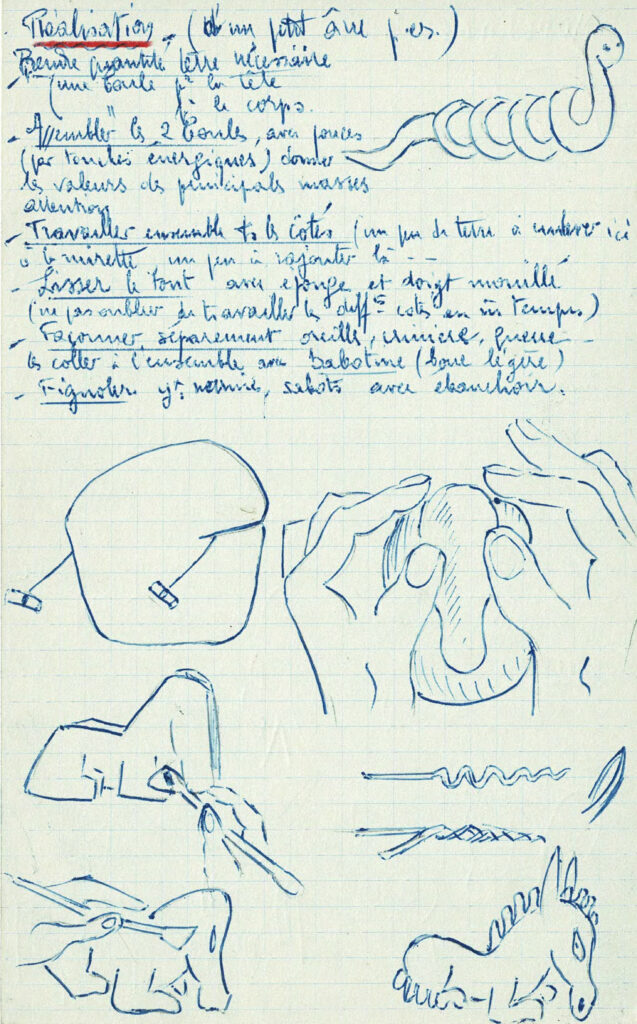 Réalisation - (d'un petit âne p. ex.)
Prendre quantité terre nécessaire
- (une boule pr la tête
( " pr le corps.
- Assembler les 2 boules, avec pouces
(par touches énergiques) donner
les valeurs des principales masses
attention
- Travailler ensemble ts les côtés (un peu de terre à enlever ici
à la mirette un peu à rajouter là - -
- Lisser le tout avec éponge et doigt mouillé
(ne pas oublier de travailler les diffts côtés en m temps)
- Façonner séparément oreille, crinière, queue -
les coller à l'ensemble avec barbotine (boue légère)
- Fignoler sabots avec ébauchoir.